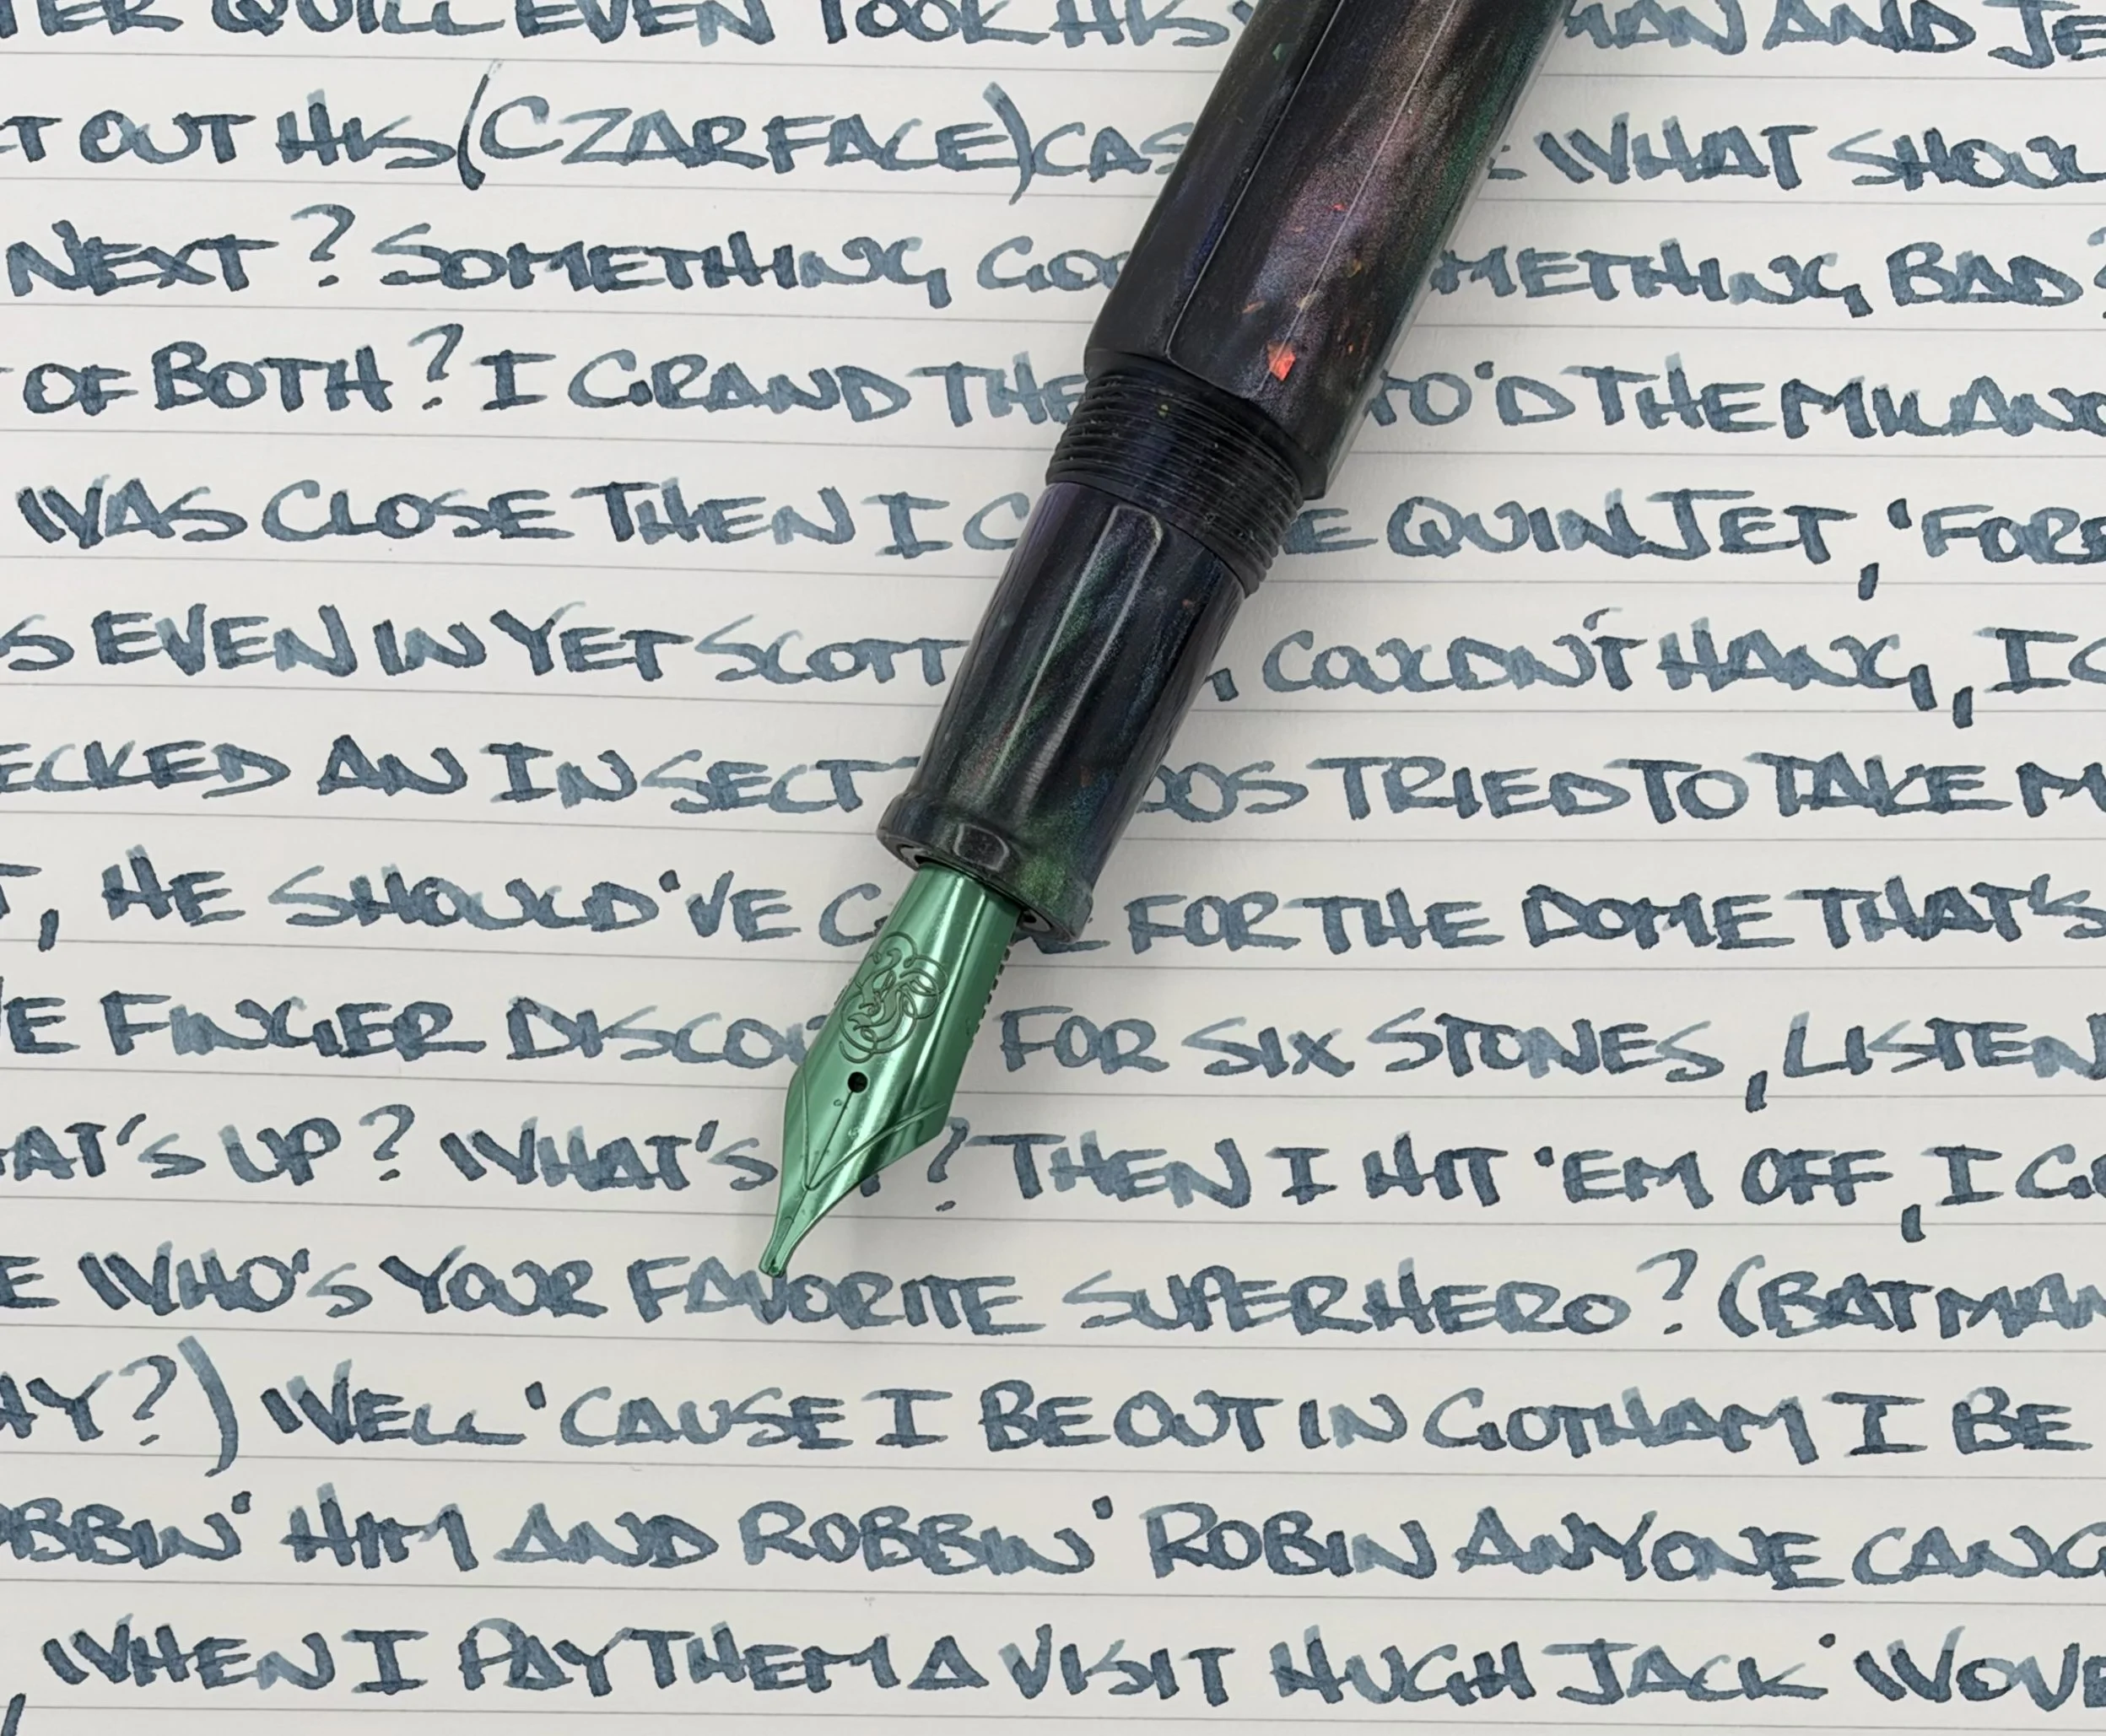 ER QUILL EVEN TOOK HIS MAN AND JE
T OUT HIS (CZARFACE) CAS WHAT SHOUL
NEXT? SOMETHING GOO METHING BAD?
OF BOTH? I GRAND THE TO'D THE MILANO
WAS CLOSE THEN I C E QUINJET, 'FORE
S EVEN IN YET SCOTT , COULDN'T HANG, I C
ECKED AN INSECT OS TRIED TO TAKE M
T, HE SHOULD'VE C E FOR THE DOME THAT'S
E FINGER DISCO FOR SIX STONES, LISTEN
AT'S UP? WHAT'S ? THEN I HIT 'EM OFF, I G
E WHO'S YOUR FAVORITE SUPERHERO? (BATMAN
HY?) WELL 'CAUSE I BE OUT IN GOTHAM I BE
OBBIN' HIM AND ROBBIN' ROBIN ANYONE CAN G
, WHEN I PAY THEM A VISIT HUGH JACK' WOVE